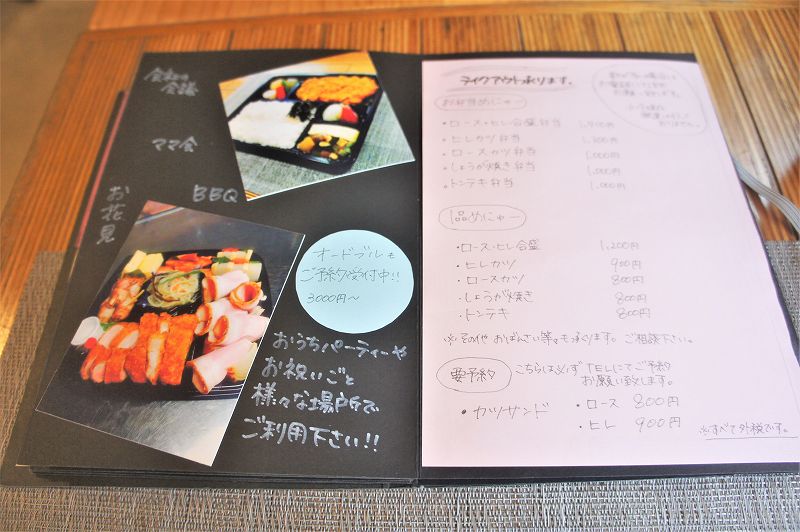 会社の
会議
ママ会
BBQ
お花見
オードブルも
ご予約受付中!!
3000円～
おうちパーティーや
お祝いごと
様々な場所で
ご利用下さい!!
テイクアウト承ります。
お弁当めにゅー
・ロース・ヒレ合盛弁当
・ヒレカツ弁当 1,300円
・ロースカツ弁当 1,000円
・しょうが焼き弁当 1,000円
・トンテキ弁当 1,000円
1品めにゅー
・ロース・ヒレ合盛 1,200円
・ヒレカツ 900円
・ロースカツ 800円
・しょうが焼き 800円
・トンテキ 800円
※その他おばんざい等々も承ります。ご相談下さい。
要予約
こちらは必ずTELにてご予約
お願い致します。
・カツサンド
・ロース 800円
・ヒレ 900円
※すべて外税です。